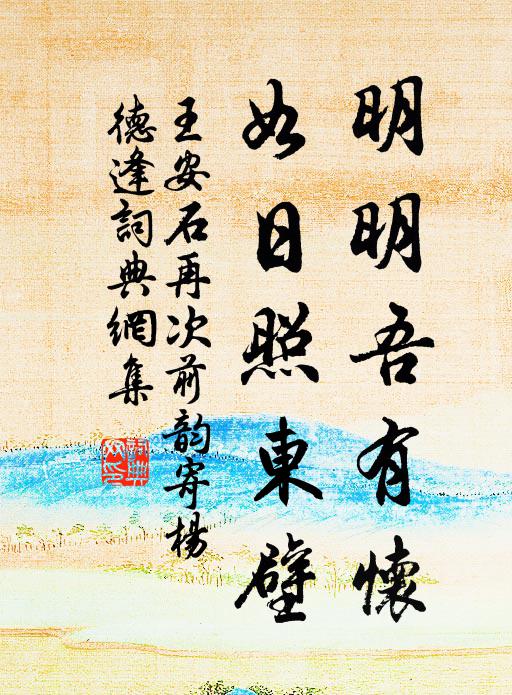 明明吾有懷
如日照東壁
王安石再次前韵寄楊
德逢詞典網集